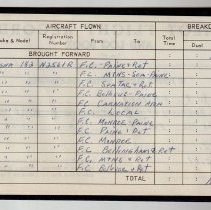 AIRCRAFT FLOWN BREAKD
Make & Model Registration Number From To Total Time Dual
BROUGHT FORWARD
182 N2561R F.C. - PAINE & RET
" " " F.C. MTNS - SEA - PAINE
" " " F.C. SEATAC & RET
" " " F.C. BELLEVUE - PAINE
" " " F.C. CARNATION AREA
" " " F.C. LOCAL
" " " F.C. MONROE - PAINE
" " " F.C. PAINE & RET
" " " F.C. MONROE
" " " F.C. BELLINGHAM & RET
" " " F.C. MTNS & RET
" " " F.C. BELLEVUE & RET
TOTAL